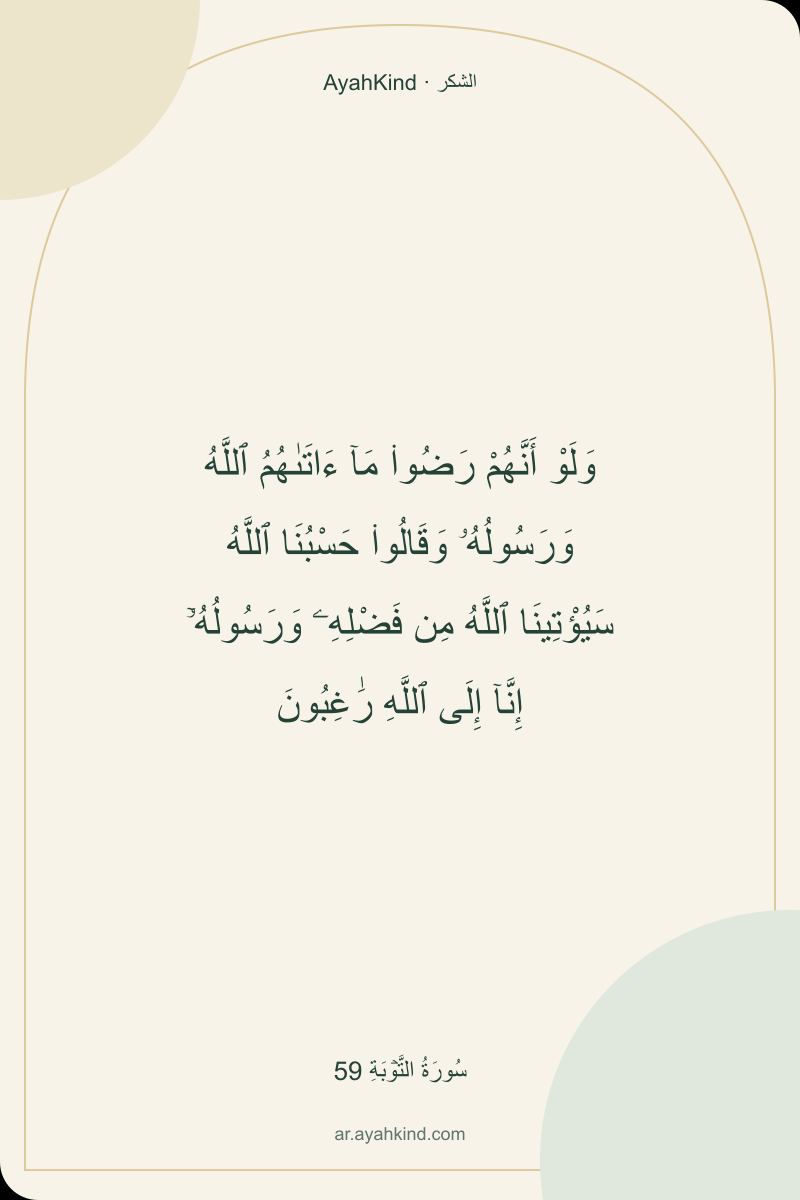 AyahKind · الشكر
وَلَوْ أَنَّهُمْ رَضُوا۟ مَآ ءَاتَىٰهُمُ ٱللَّهُ
وَرَسُولُهُۥ وَقَالُوا۟ حَسْبُنَا ٱللَّهُ
سَيُؤْتِينَا ٱللَّهُ مِن فَضْلِهِۦ وَرَسُولُهُۥٓ
إِنَّآ إِلَى ٱللَّهِ رَٰغِبُونَ
سُورَةُ التَّوۡبَةِ 59
ar.ayahkind.com